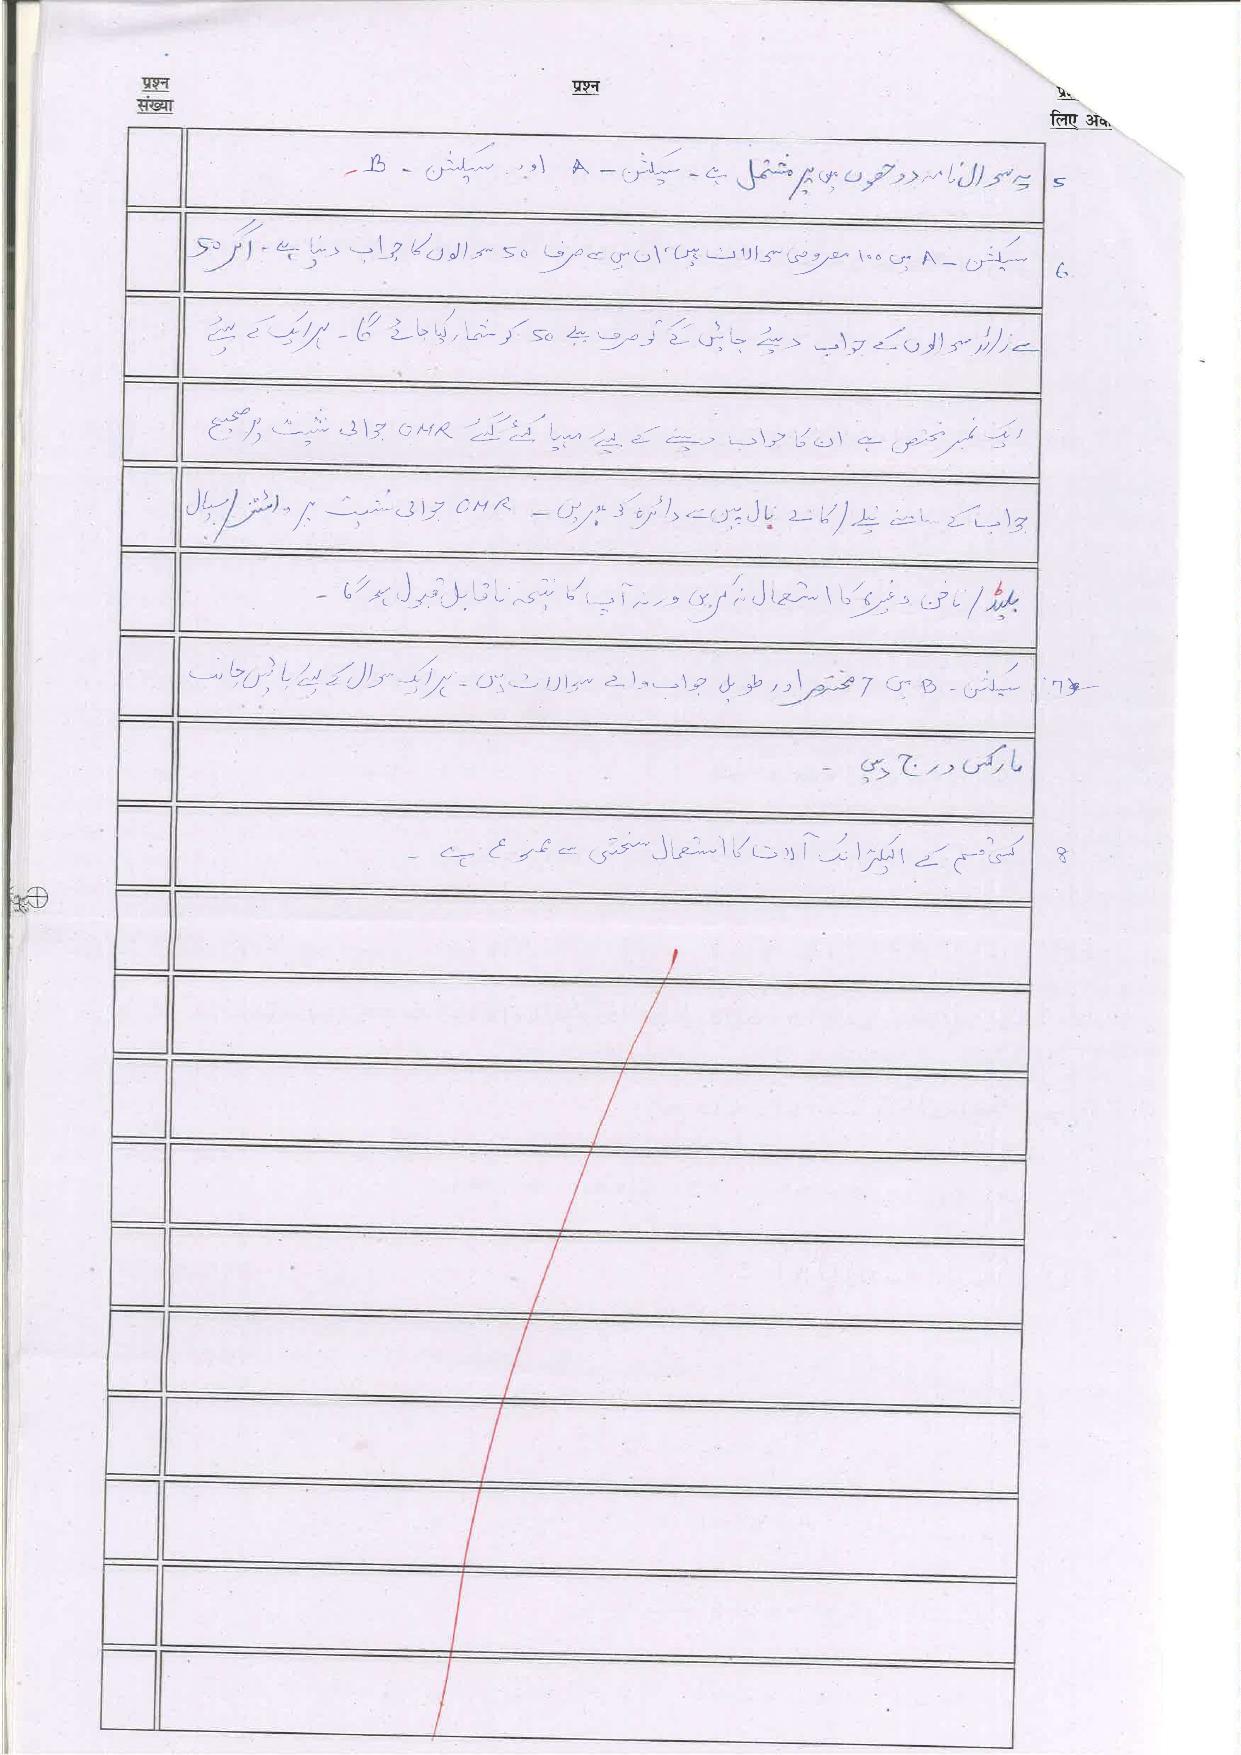 प्रश्न
संख्या
प्रश्न
लिए
5 یہ سوال نامہ دو حصوں میں پر مشتمل ہے ۔ سیکشن – A اور سیکشن - B ۔
6 سیکشن – A میں 100 معروضی سوالات ہیں، ان میں سے صرف 50 سوالوں کا جواب دینا ہے ۔ اگر 50
سے زائد سوالوں کے جواب دیئے جائیں گے تو صرف پہلے 50 کو شمار کیا جائے گا ۔ ہر ایک کے لیے
ایک نمبر مختص ہے ان کا جواب دینے کے لیے مہیا کئے گئے OMR جوابی شیٹ پر صحیح
جواب کے سامنے نیلے / کالے بال پین سے دائرہ کو بھریں ۔ OMR جوابی شیٹ پر وائٹنر/سیال
بلیڈ / ناخن وغیرہ کا استعمال نہ کریں ورنہ آپ کا نتیجہ ناقابل قبول ہوگا ۔
7 سیکشن - B میں 7 مختصر اور طویل جواب والے سوالات ہیں ۔ ہر ایک سوال کے لیے بائیں جانب
مارکس درج ہیں ۔
8 کسی قسم کے الیکٹرانک آلات کا استعمال سختی سے ممنوع ہے ۔